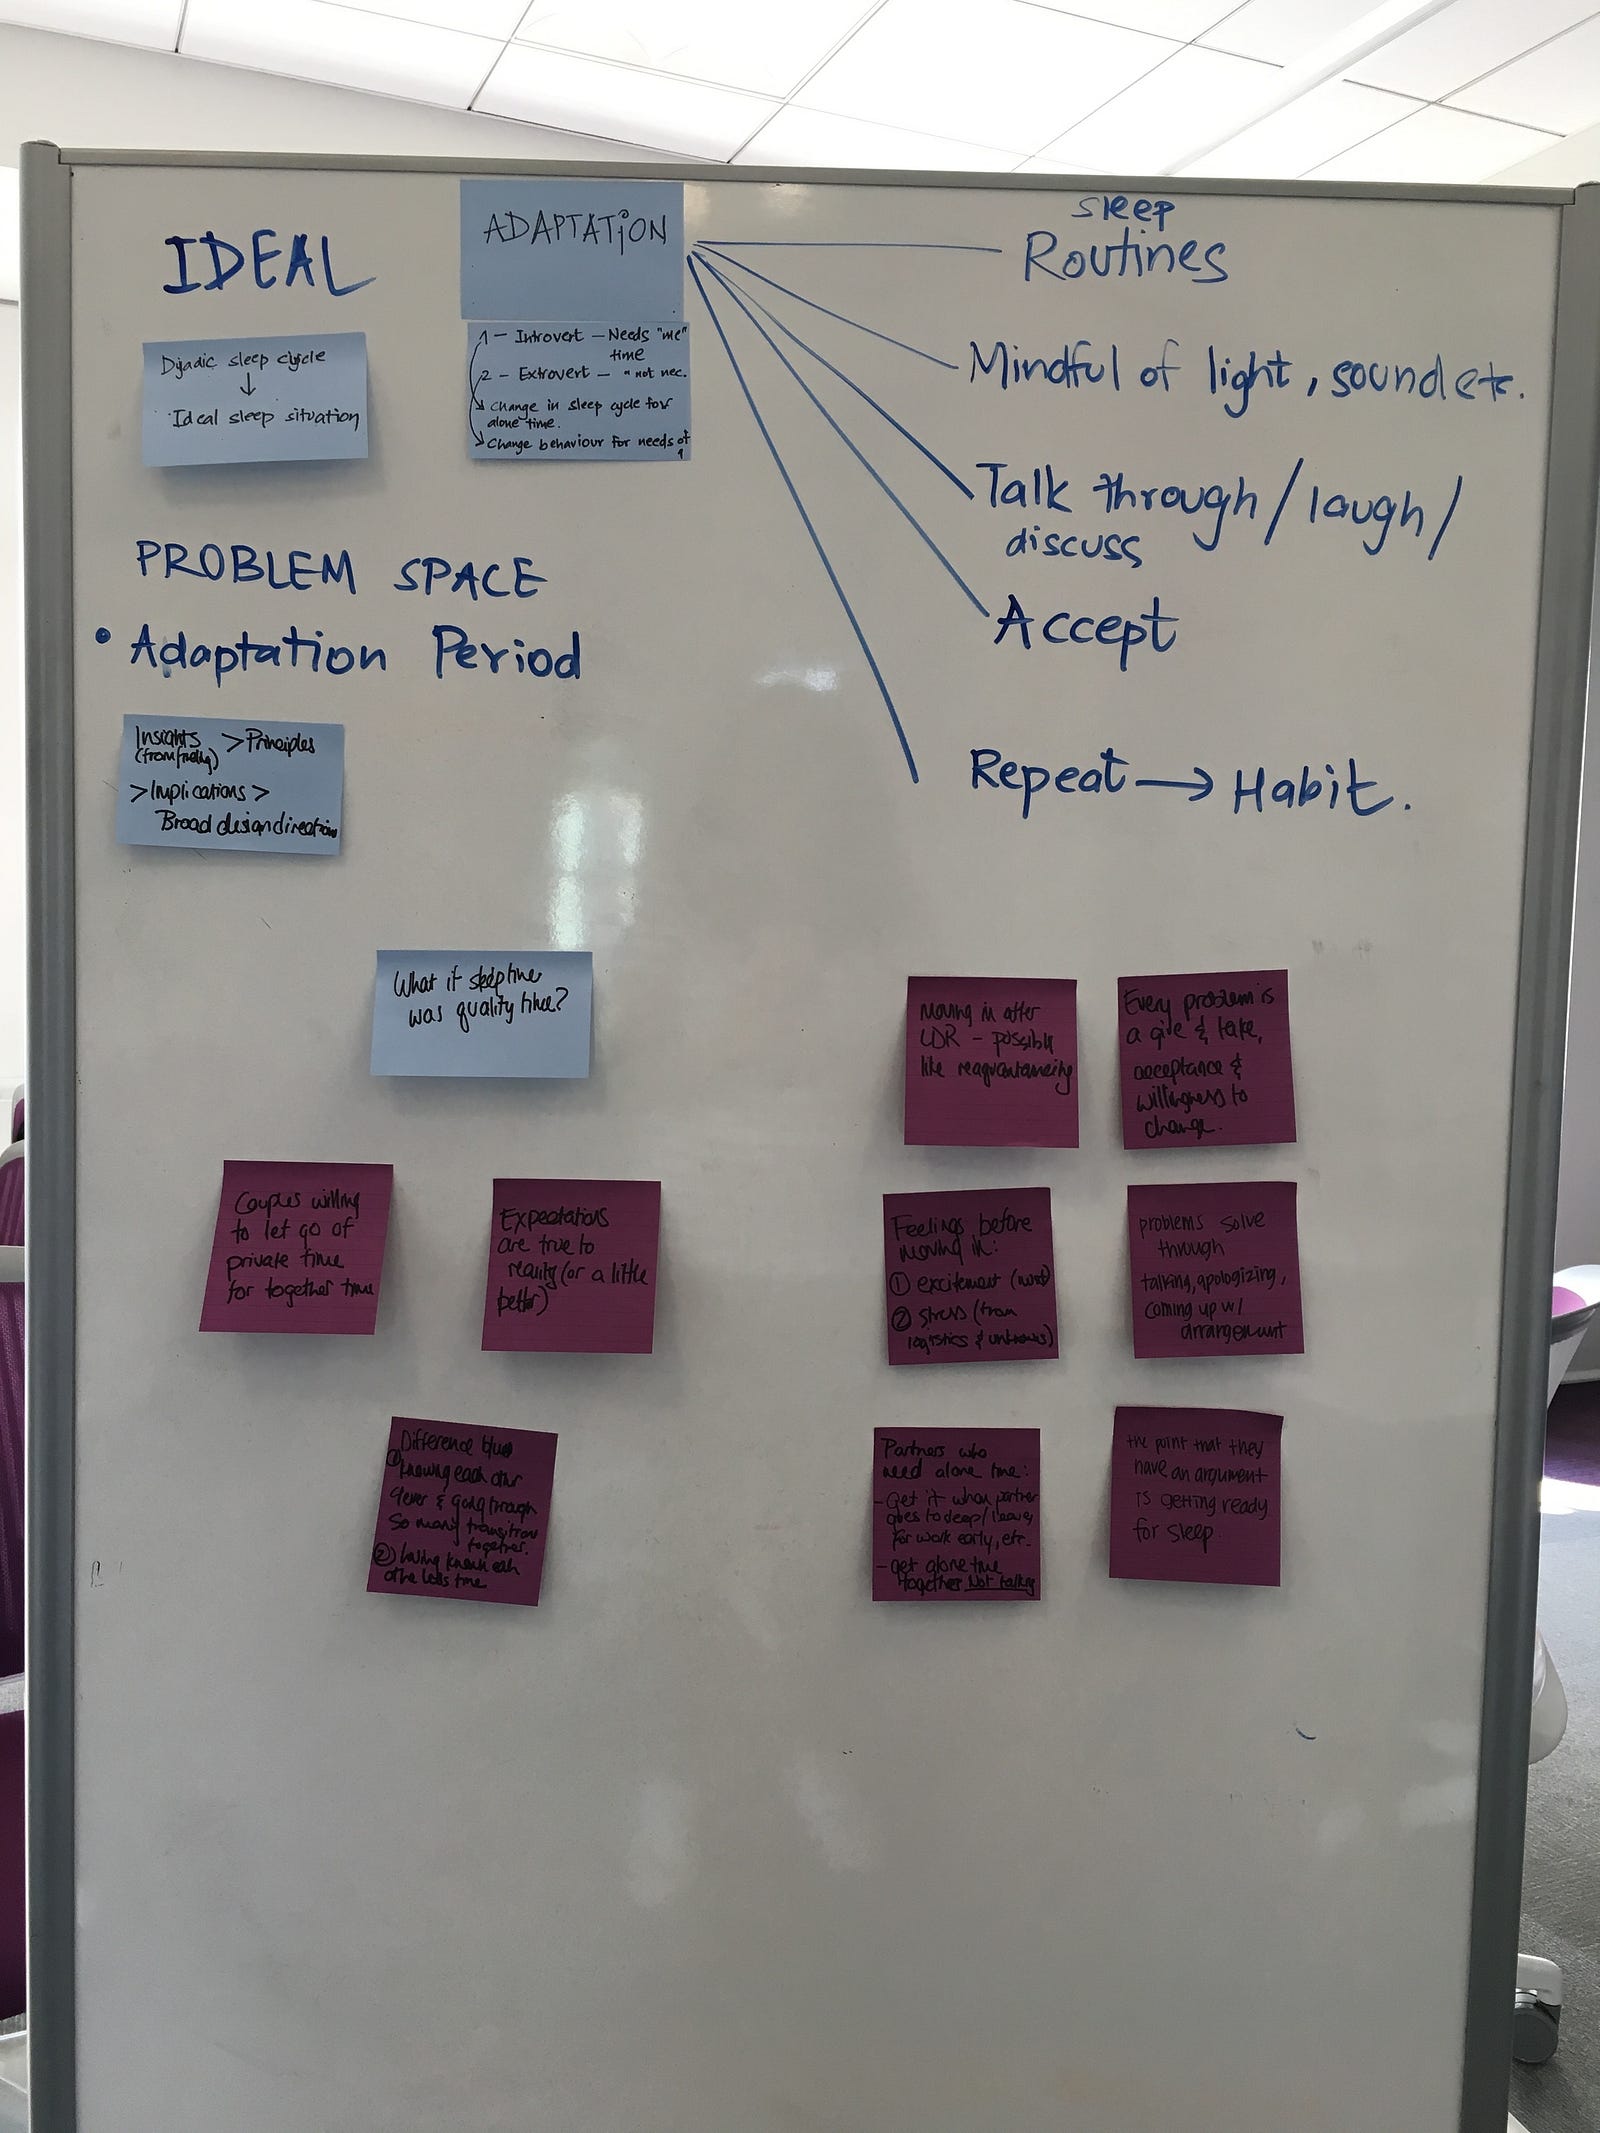 IDEAL
Dyadic sleep cycle
↓
Ideal sleep situation
ADAPTATiON
1 - Introvert - Needs "me"
time
2 - Extrovert - " not nec.
Change in sleep cycle for
alone time.
Change behaviour for needs of
1
sleep
Routines
Mindful of light, sound etc.
Talk through / laugh /
discuss
Accept
Repeat → Habit.
PROBLEM SPACE
• Adaptation Period
Insights > Principles
(from finding)
> Implications >
Broad design direction
What if sleep time
was quality time?
Couples willing
to let go of
private time
for together time
Expectations
are true to
reality (or a little
better)
Difference btwn
① knowing each other
4ever & going through
so many transitions
together.
② having known each
other less time
Moving in after
LDR - possible
like reaquantancing
Every problem is
a give & take,
acceptance &
willingness to
change.
Feelings before
moving in:
① excitement (most)
② stress (from
logistics & unknowns)
problems solve
through
talking, apologizing,
coming up w/
arrangement
Partners who
need alone time:
- get it when partner
goes to sleep/leaves
for work early, etc.
- get alone time
together Not talking
the point that they
have an argument
is getting ready
for sleep